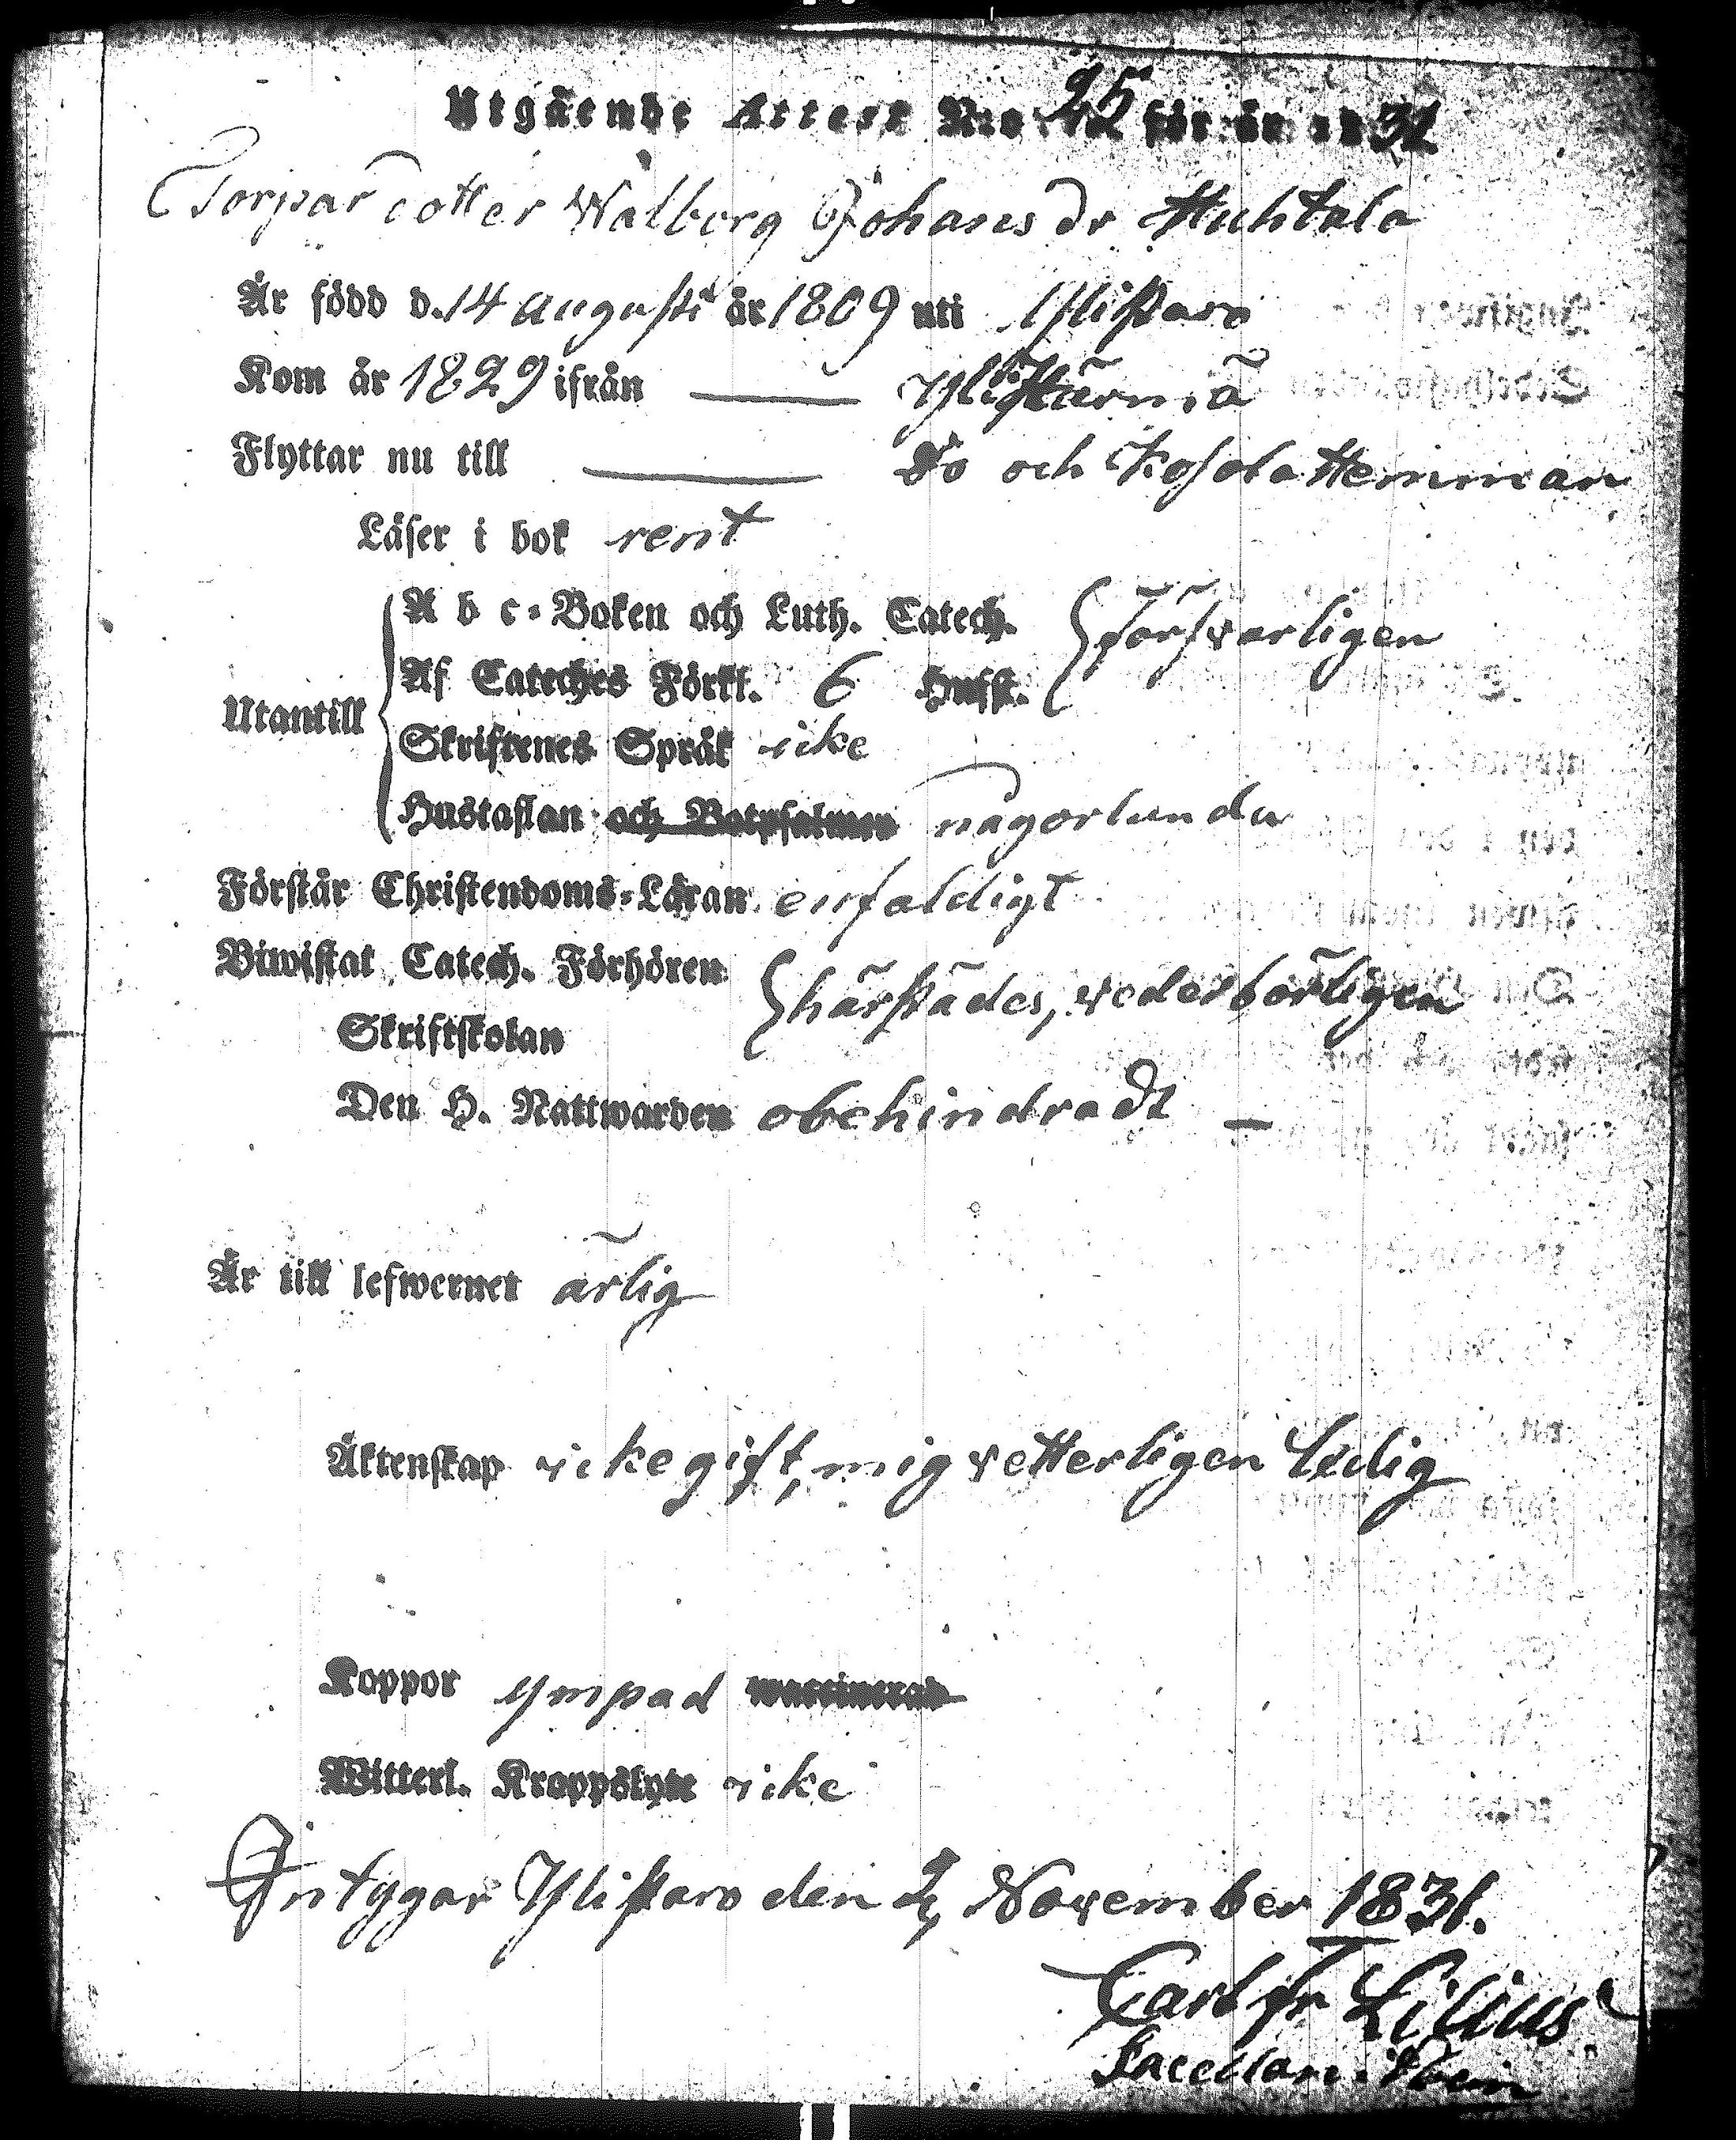 Utgående Attest No 25 för år 1831
Torpar dotter Walborg Johans dr Huhtala
Är född d. 14 augusti år 1809 uti Ylistaro
Kom år 1829 ifrån — Ylihärmä
Flyttar nu till — Do och Kosola Hemman
Läser i bok rent
A b c-Boken och Luth. Catech. försvarligen
Af Cateches Förkl. 6 Hufst.
Utantill
Skriftenes Språk icke
Hustaflan och Botpsalmen någorlunda
Förstår Christendoms-Läran enfaldigt
Biwistat Catech. Förhören härstädes, vederbörligen
Skriftskolan
Den H. Nattwarden obehindradt —
Är till lefwernet ärlig
Äktenskap icke gift, mig vetterligen ledig
Koppor ympad waccinerad
Witterl. Kroppslyte icke
Intygar Ylistaro den 2 November 1831.
Carl Fr Lilius
Sacellan